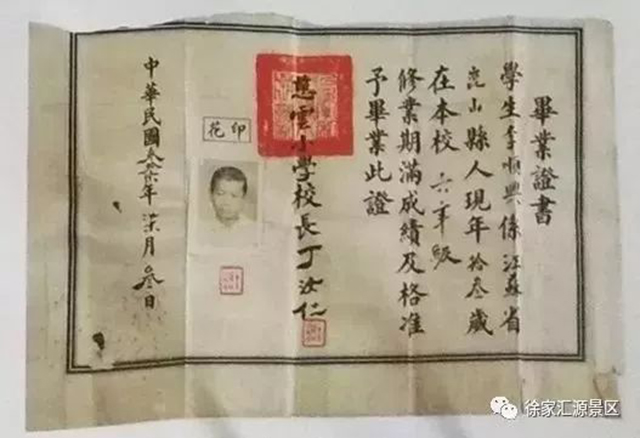 畢業證書
學生李順興係江蘇省
崑山縣人現年拾叁歲
在本校六年級
修業期滿成績及格准
予畢業此證
慈雲小學校長丁汝仁
印花
中華民國叁柒年柒月叁日
徐家汇源景区